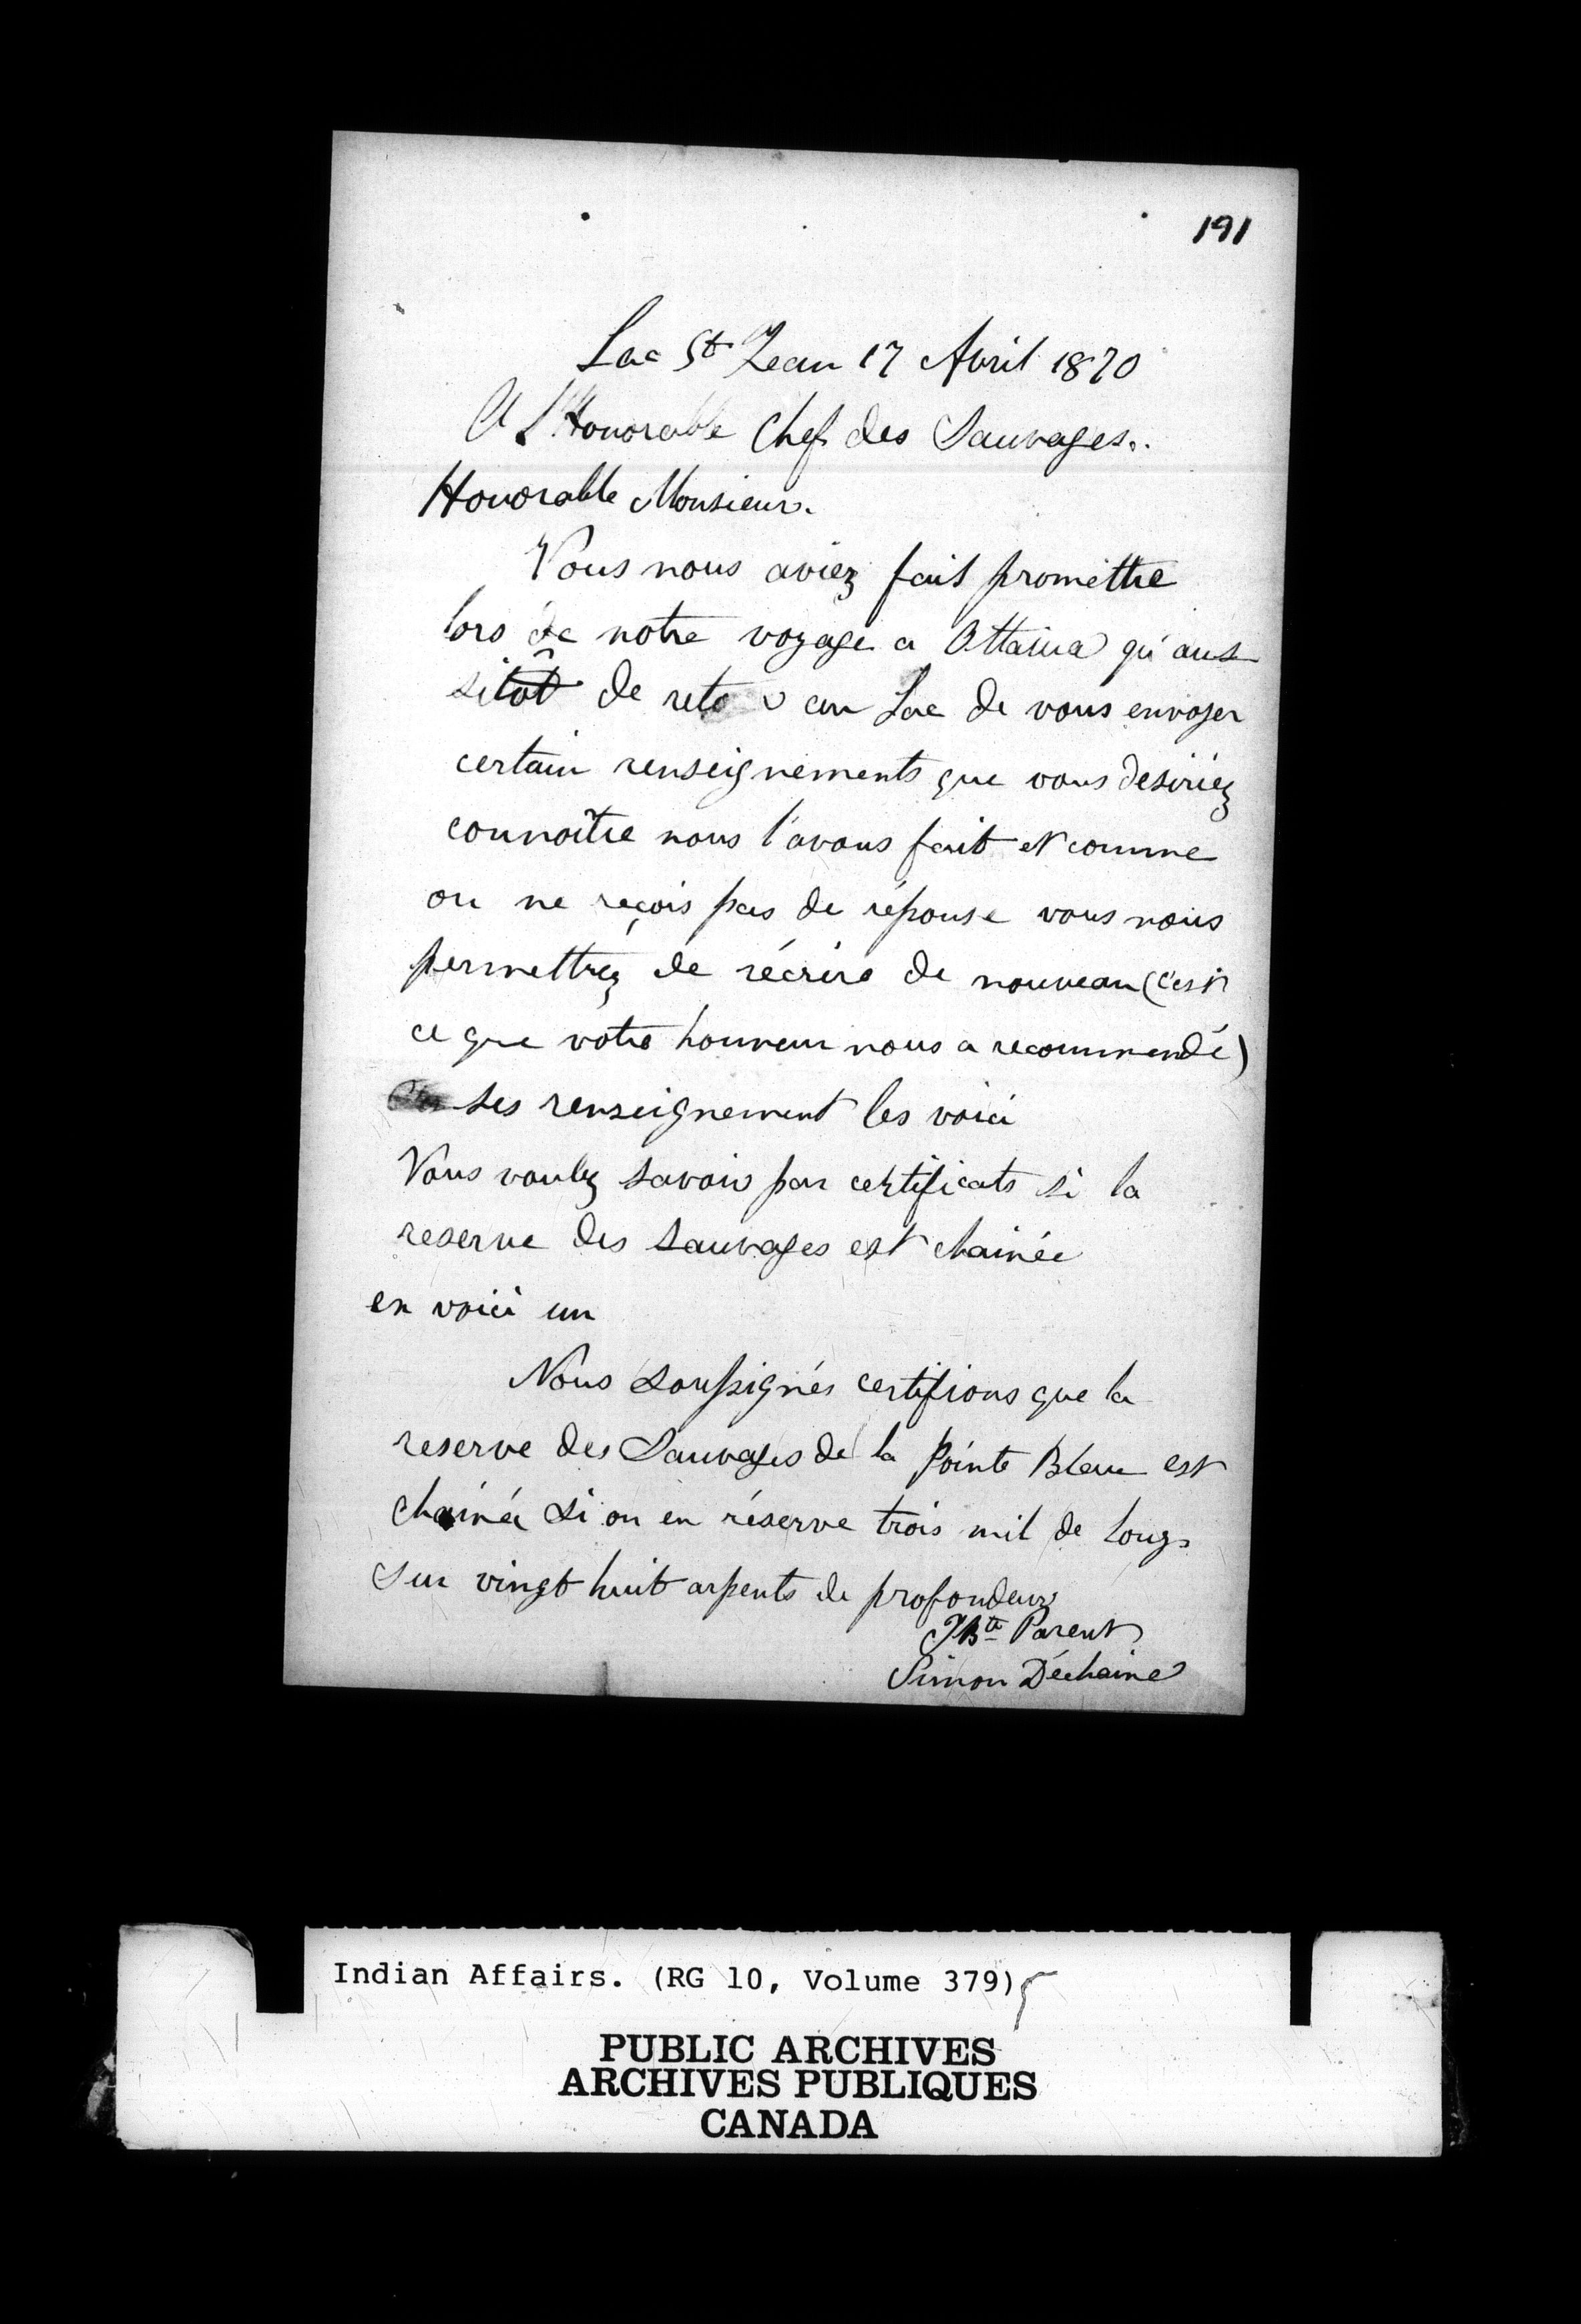 191
Lac St Jean 17 Avril 1870
A L'Honorable Chef des Sauvages..
Honorable Monsieur.
Vous nous aviez fait promettre
lors de notre voyage a Ottawa qu'aus
sitôt de au Lac de vous envoyer
certain renseignements que vous desiriez
connoître nous l'avons fait et comme
on ne reçois pas de réponse vous nous
permettrez de récrire de nouveau (c'est
ce que votre honneur nous a recommendé)
ses renseignement les voici
Vous voulez savoir par certificats si la
reserve des Sauvages est chainée
en voici un
Nous soussignés certifions que la
reserve des Sauvages de la Pointe Bleue est
chainée si on en réserve trois mil de long
sur vingt huit arpents de profondeur
JBte Parent
Simon Déchaine
Indian Affairs. (RG 10, Volume 379)
PUBLIC ARCHIVES
ARCHIVES PUBLIQUES
CANADA